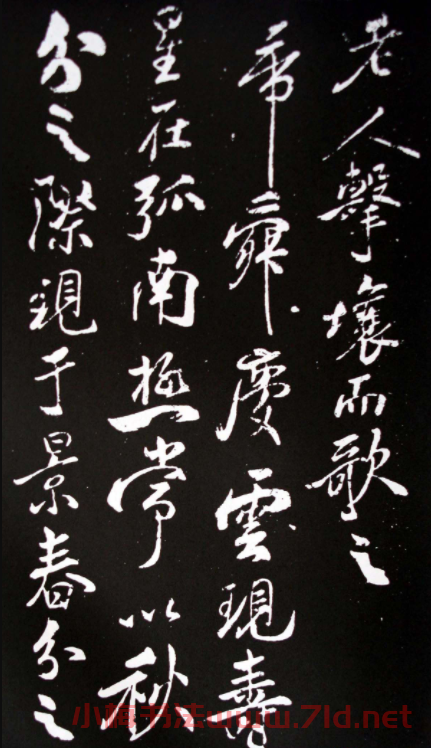 老人擊壤而歌之
帝舜慶雲現壽
星在弧南極常以秋
分之際現于景春分之
小梅书法www.7ld.net